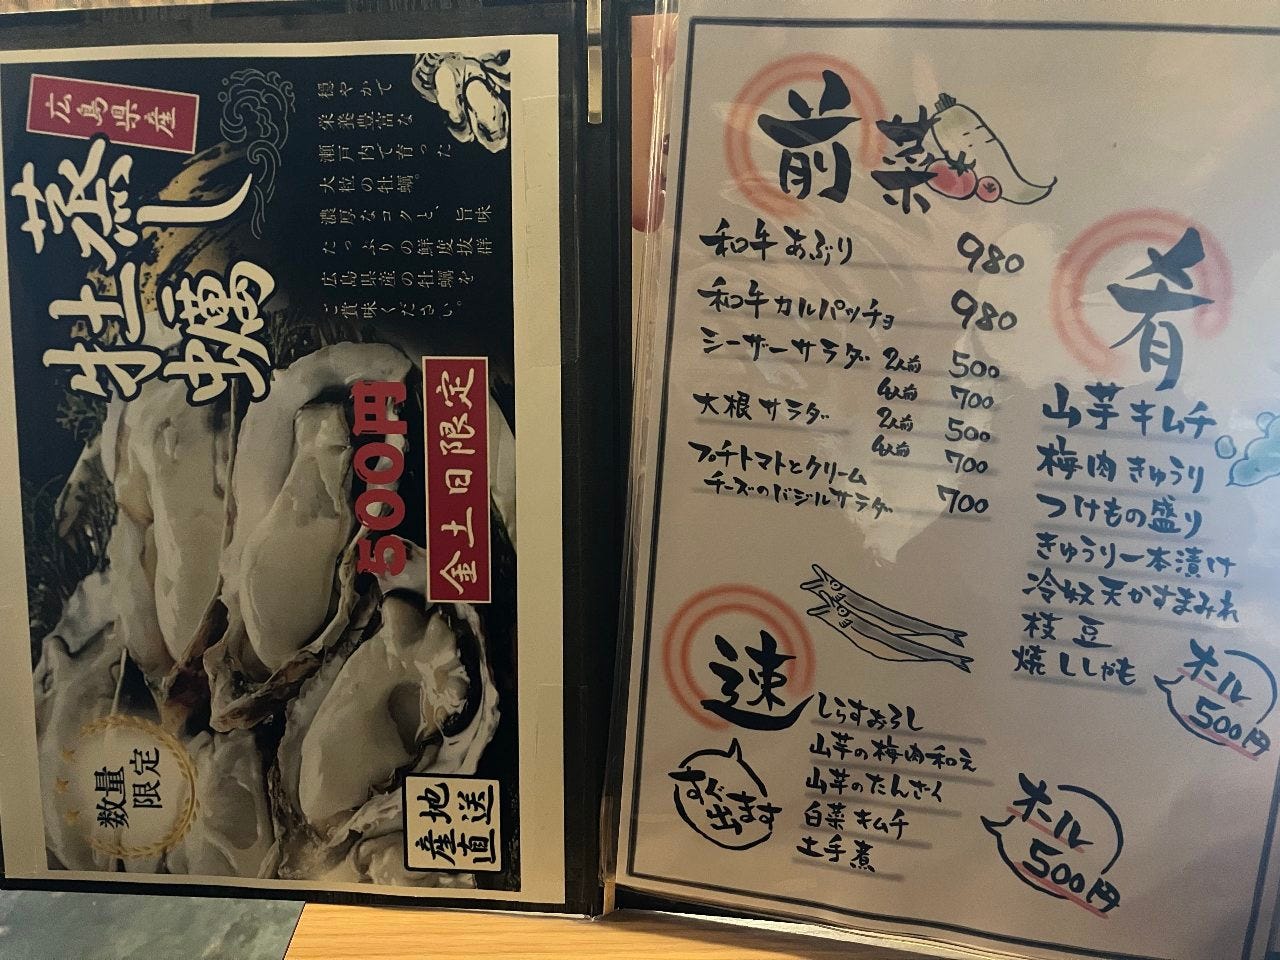 広島県産
蒸し
牡蠣
穏やかで
栄養豊富な
瀬戸内で育った
大粒の牡蠣。
濃厚なコクと、旨味
たっぷりの鮮度抜群
広島県産の牡蠣を
ご賞味ください。
500円
金土日限定
数量
限定
産地
直送
前菜
和牛あぶり 980
和牛カルパッチョ 980
シーザーサラダ 2人前 500
4人前 700
大根サラダ 2人前 500
4人前 700
プチトマトとクリーム
チーズのバジルサラダ 700
肴
山芋キムチ
梅肉きゅうり
つけもの盛り
きゅうり一本漬け
冷奴天かすまみれ
枝豆
焼ししゃも
オール
500円
速
すぐ出ます
しらすおろし
山芋の梅肉和え
山芋のたんざく
白菜キムチ
土手煮
オール
500円